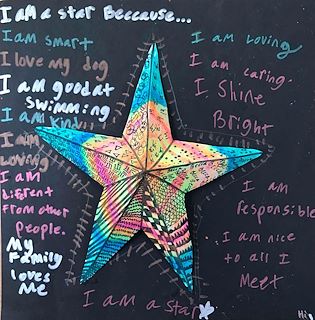 I am a star Beccause...
I am smart
I love my dog
I am good at
swimming
I am kind
I am
Loving
I am
different
from other
people.
My
Family
loves
Me
I am Loving
I am caring.
I Shine
Bright
I am
responsible
I am nice
to all I
Meet
I am a star
Hi